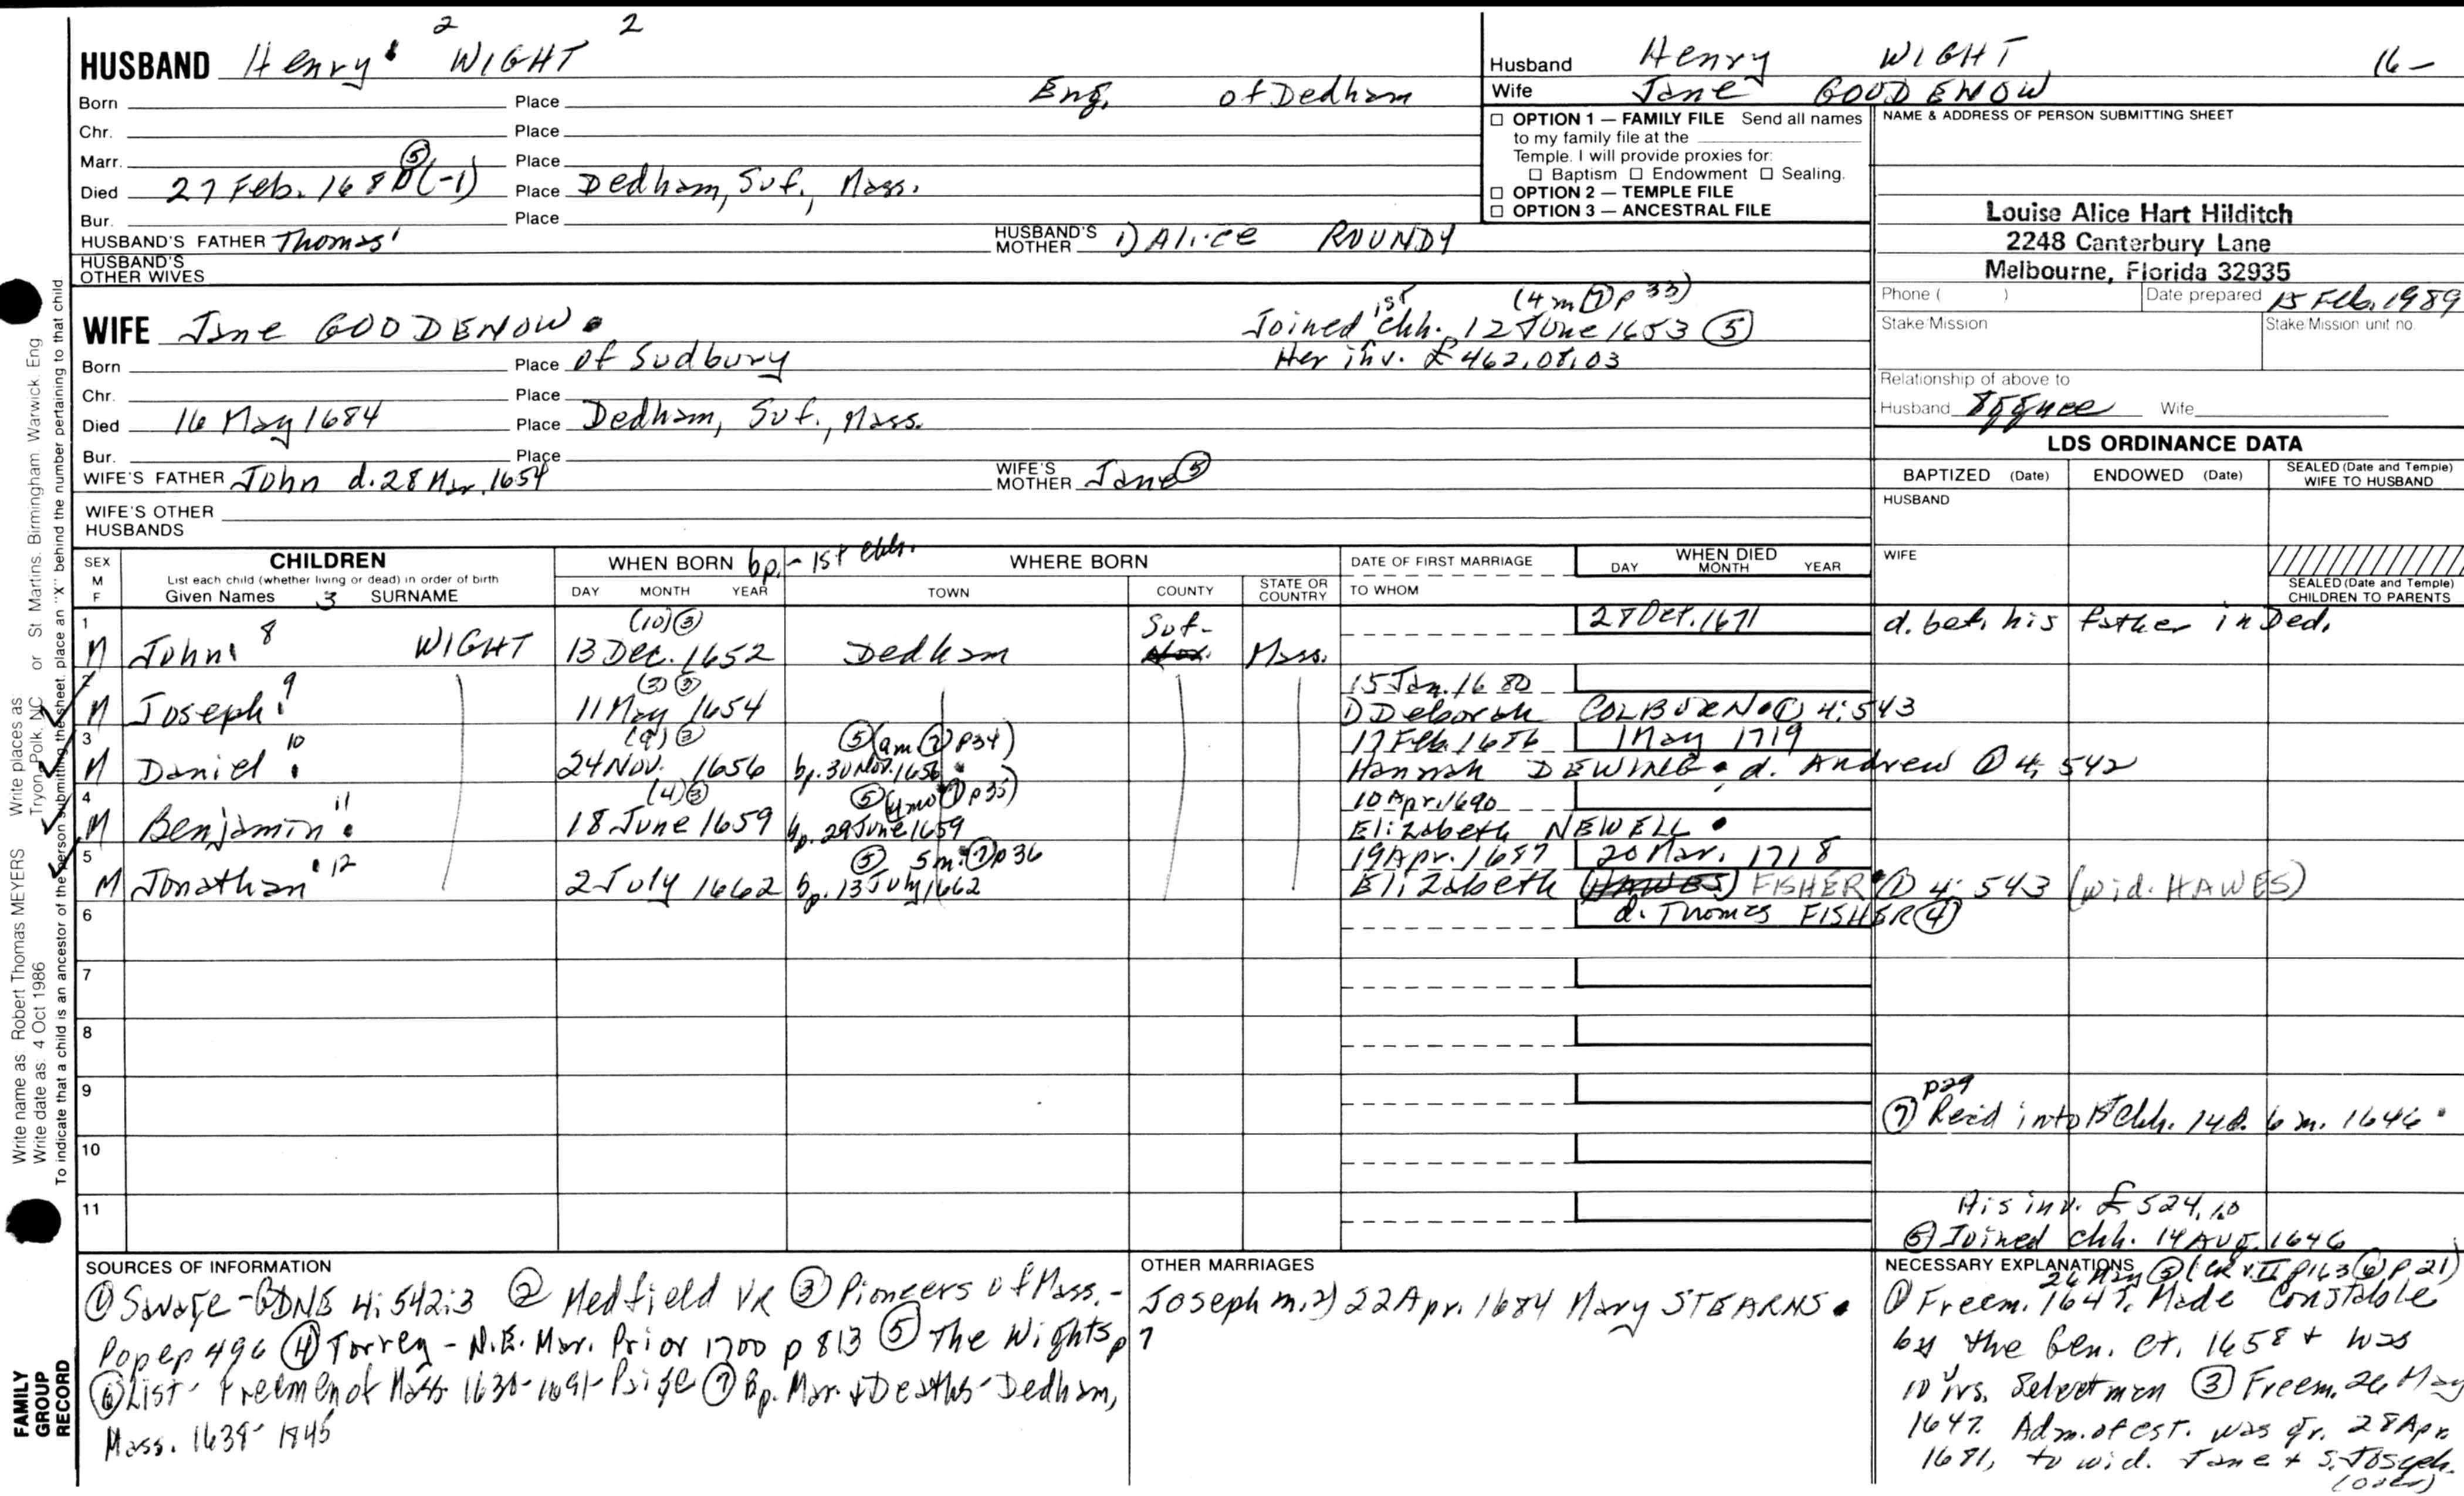 2 2
HUSBAND Henry WIGHT
Born Place Eng. of Dedham
Chr. Place
Marr. Place
Died 27 Feb. 1680(-1) ⑤ Place Dedham, Suf., Mass.
Bur. Place
HUSBAND'S FATHER Thomas¹ HUSBAND'S MOTHER 1) Alice ROUNDY
HUSBAND'S OTHER WIVES
Husband Henry WIGHT 16-
Wife Jane GOODENOW
☐ OPTION 1 — FAMILY FILE Send all names
to my family file at the
Temple. I will provide proxies for:
☐ Baptism ☐ Endowment ☐ Sealing.
☐ OPTION 2 — TEMPLE FILE
☐ OPTION 3 — ANCESTRAL FILE
NAME & ADDRESS OF PERSON SUBMITTING SHEET
Louise Alice Hart Hilditch
2248 Canterbury Lane
Melbourne, Florida 32935
Phone ( ) Date prepared 15 Feb. 1989
Stake/Mission Stake/Mission unit no.
Relationship of above to
Husband Wife
1st (4 m ⑦ p 33)
WIFE Jane GOODENOW Joined chh. 12 June 1653 ⑤
Born Place of Sudbury Her inv. £462.08.03
Chr. Place
Died 16 May 1684 Place Dedham, Suf., Mass.
Bur. Place
WIFE'S FATHER John d. 28 Mar. 1654 WIFE'S MOTHER Jane ⑤
WIFE'S OTHER HUSBANDS
LDS ORDINANCE DATA
BAPTIZED (Date) ENDOWED (Date) SEALED (Date and Temple) WIFE TO HUSBAND
HUSBAND
WIFE
SEALED (Date and Temple) CHILDREN TO PARENTS
SEX M F CHILDREN WHEN BORN bp. - 1st chh. WHERE BORN DATE OF FIRST MARRIAGE WHEN DIED
List each child (whether living or dead) in order of birth
Given Names 3 SURNAME DAY MONTH YEAR TOWN COUNTY STATE OR COUNTRY TO WHOM DAY MONTH YEAR
1 (10) ③ Suf. 28 Oct. 1671 d. bef. his father in Ded.
M John 8 WIGHT 13 Dec. 1652 Dedham Nor. Mass.
2 (3) ③ 15 Jan. 1680
M Joseph 9 11 May 1654 1) Deborah COLBURN ① 4:543
3 (9) ③ ⑤ (9m ⑦ p34) 17 Feb. 1686 1 May 1719
M Daniel 10 24 Nov. 1656 bp. 30 Nov. 1656 Hannah DEWING d. Andrew ① 4:542
4 (4) ③ ⑤ (4mo ⑦ p35) 10 Apr. 1690
M Benjamin 11 18 June 1659 bp. 29 June 1659 Elizabeth NEWELL
5 ⑤ 5m. ⑦ p36 19 Apr. 1687 20 Mar. 1718
M Jonathan 12 2 July 1662 bp. 13 July 1662 Elizabeth (HAWES) FISHER ① 4:543 (wid. HAWES)
6 d. Thomas FISHER ④
7
8
9 p29
⑦ Rec'd into 1st Chh. 14d. 6 m. 1646
10
11 His inv. £524.10
⑤ Joined chh. 14 Aug. 1646
SOURCES OF INFORMATION
① Savage - GDNE 4:542:3 ② Medfield VR ③ Pioneers of Mass. -
Pope p 496 ④ Torrey - N.E. Mar. Prior 1700 p 813 ⑤ The Wights p 7
⑥ List - Freemen of Mass 1630-1691 - Paige ⑦ Bp. Mar. & Deaths - Dedham,
Mass. 1638-1845
OTHER MARRIAGES
Joseph m. 2) 22 Apr. 1684 Mary STEARNS
NECESSARY EXPLANATIONS
26 May ③ (CR v. II p163 ⑥ p 21)
① Freem. 1647. Made Constable
by the Gen. Ct. 1658 & was
10 yrs. Selectmen ③ Freem. 26 May
1647. Adm. of est. was gr. 28 Apr.
1681, to wid. Jane & S. Joseph.
(over)
Write name as Robert Thomas MEYERS Write places as: Tryon, Polk, NC or St Martins, Birmingham, Warwick, Eng
Write date as: 4 Oct 1986
To indicate that a child is an ancestor of the person submitting the sheet, place an "X" behind the number pertaining to that child.
FAMILY
GROUP
RECORD